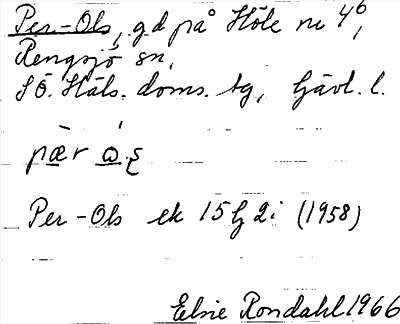 Per-Ols, gd på Höle nr 4⁶,
Rengsjö sn,
SÖ. Häls. doms. tg, Gävl. l.
pær
Per-Ols ek 15G2i (1958)
Elsie Rondahl 1966